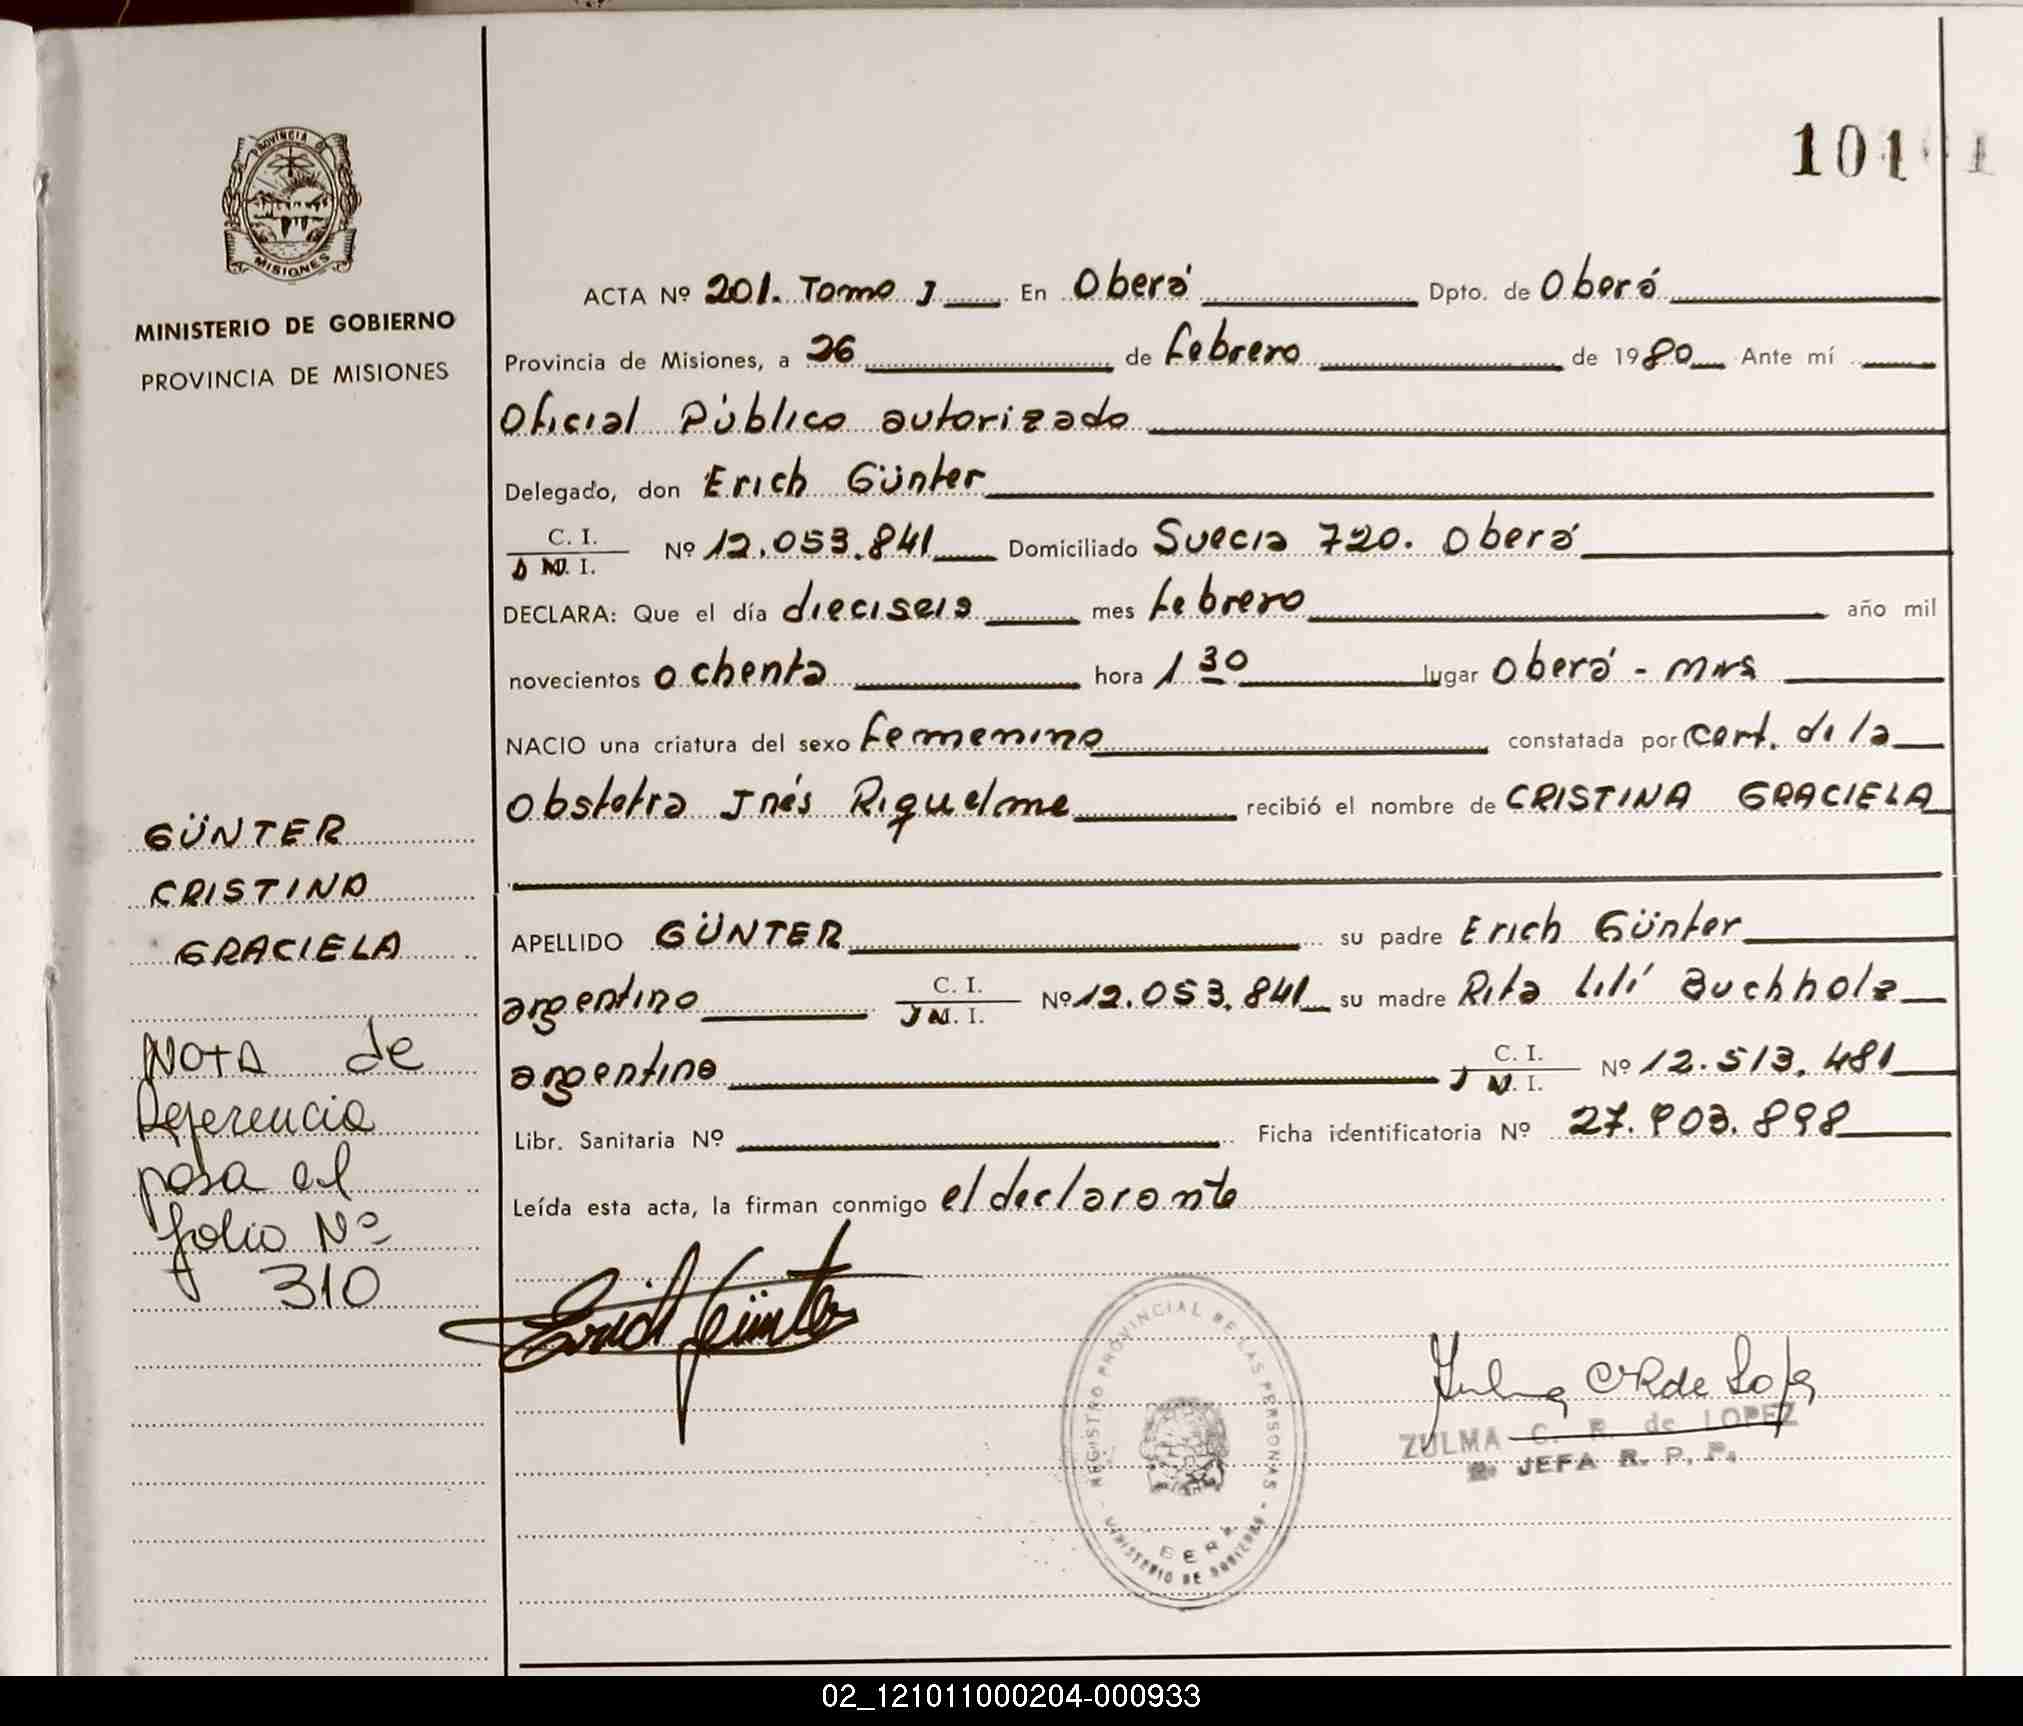 101 1
PROVINCIA DE
MISIONES
MINISTERIO DE GOBIERNO
PROVINCIA DE MISIONES
ACTA Nº 201. Tomo I En Oberá Dpto. de Oberá
Provincia de Misiones, a 26 de febrero de 1980 Ante mí
Oficial Público autorizado
Delegado, don Erich Günter
C. I. Nº 12.053.841 Domiciliado Suecia 720. Oberá
D N. I.
DECLARA: Que el día dieciseis mes febrero año mil
novecientos ochenta hora 1 30 lugar Oberá - Mns
NACIO una criatura del sexo femenino constatada por cert. de la
Obstetra Inés Riquelme recibió el nombre de CRISTINA GRACIELA
APELLIDO GÜNTER su padre Erich Günter
argentino C. I. Nº 12.053.841 su madre Rita Lilí Buchholz
N. I.
argentina C. I. Nº 12.513.481
N. I.
Libr. Sanitaria Nº Ficha identificatoria Nº 27.903.898
Leída esta acta, la firman conmigo el declarante
GÜNTER
CRISTINA
GRACIELA
NOTA de
Referencia
pasa al
folio Nº
310
Erich Günter
REGISTRO PROVINCIAL DE LAS PERSONAS
MINISTERIO DE GOBIERNO
Zulma C R de Lopez
ZULMA C. R. de LOPEZ
JEFA R. P. P.
02_121011000204-000933